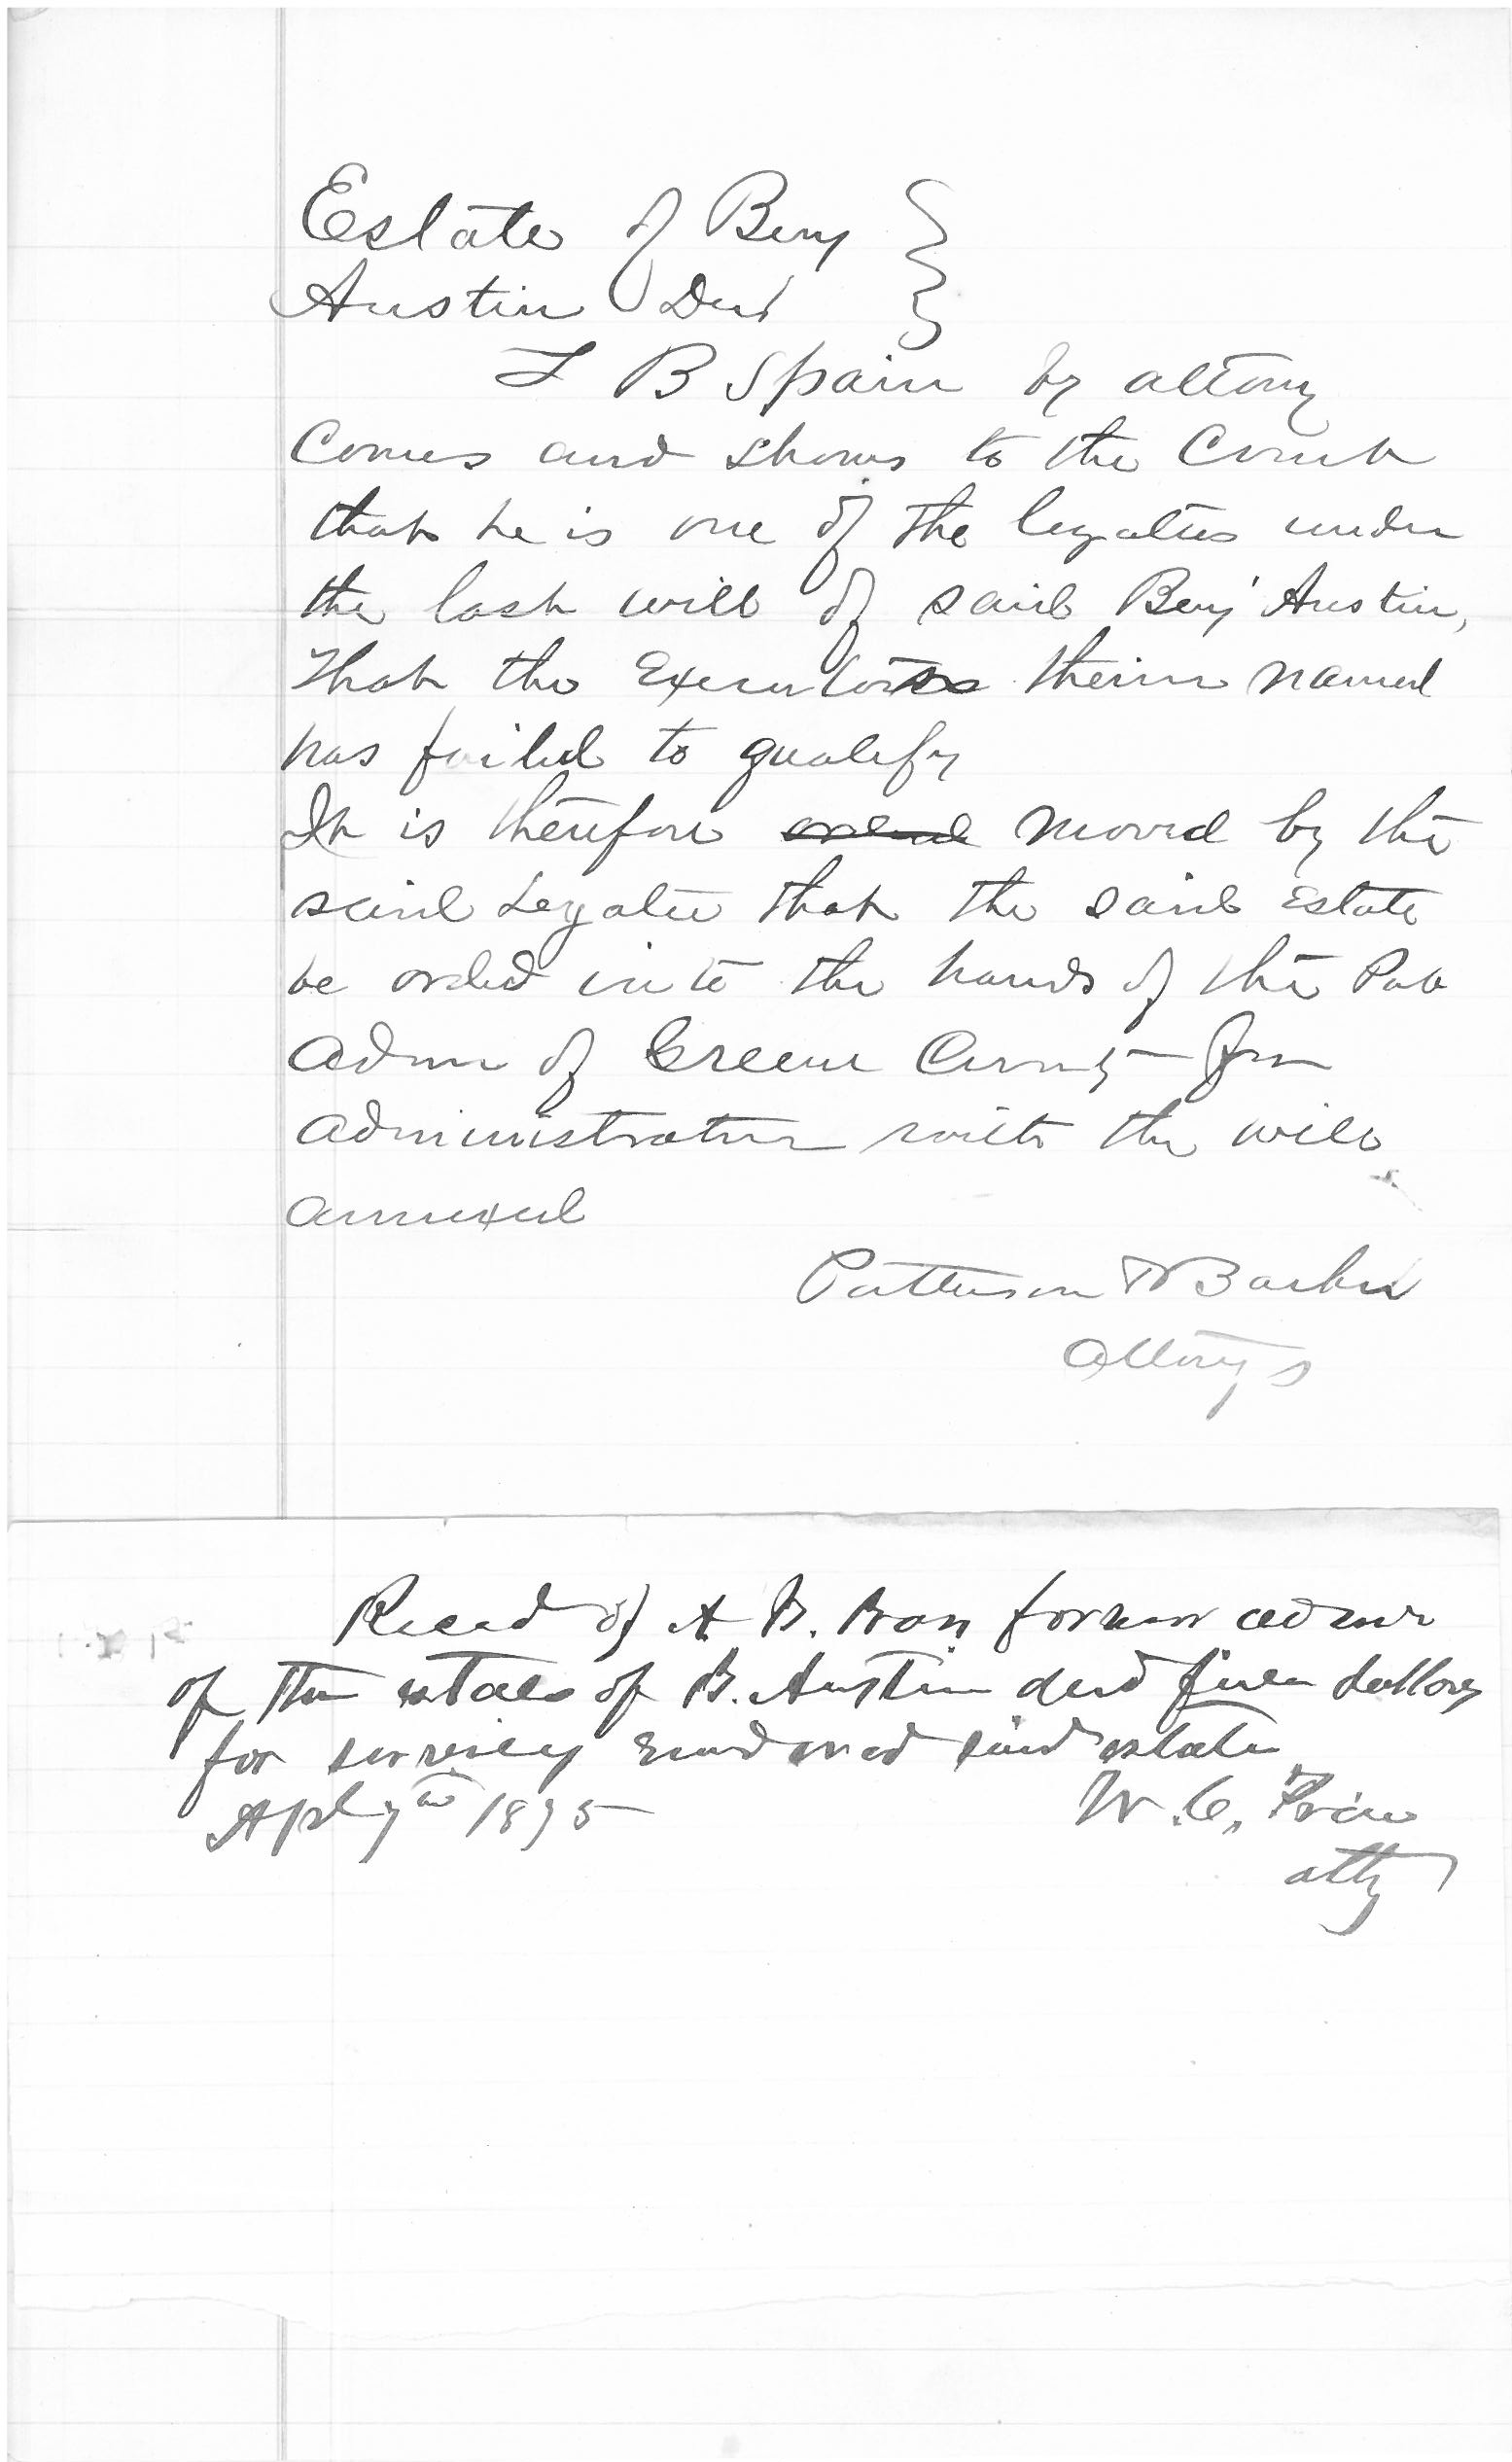 Estate of Benj
Austin Decd
L B Spain by attony
Comes and Shows to the Court
that he is one of the legatees under
the last will of said Benj Austin,
That the Executor therin named
has failed to qualify
It is therefore moved by the
said Legatee that the said Estate
be orded into the hands of the Pub
Admr of Greene County for
administration with the will
annexed
Patterson & Barker
Attorys
Recd of A B. former admr
of the estate of B. Austin decd five dollars
for services rendered said estate
Apl 7th 1875
W. C. Price
atty